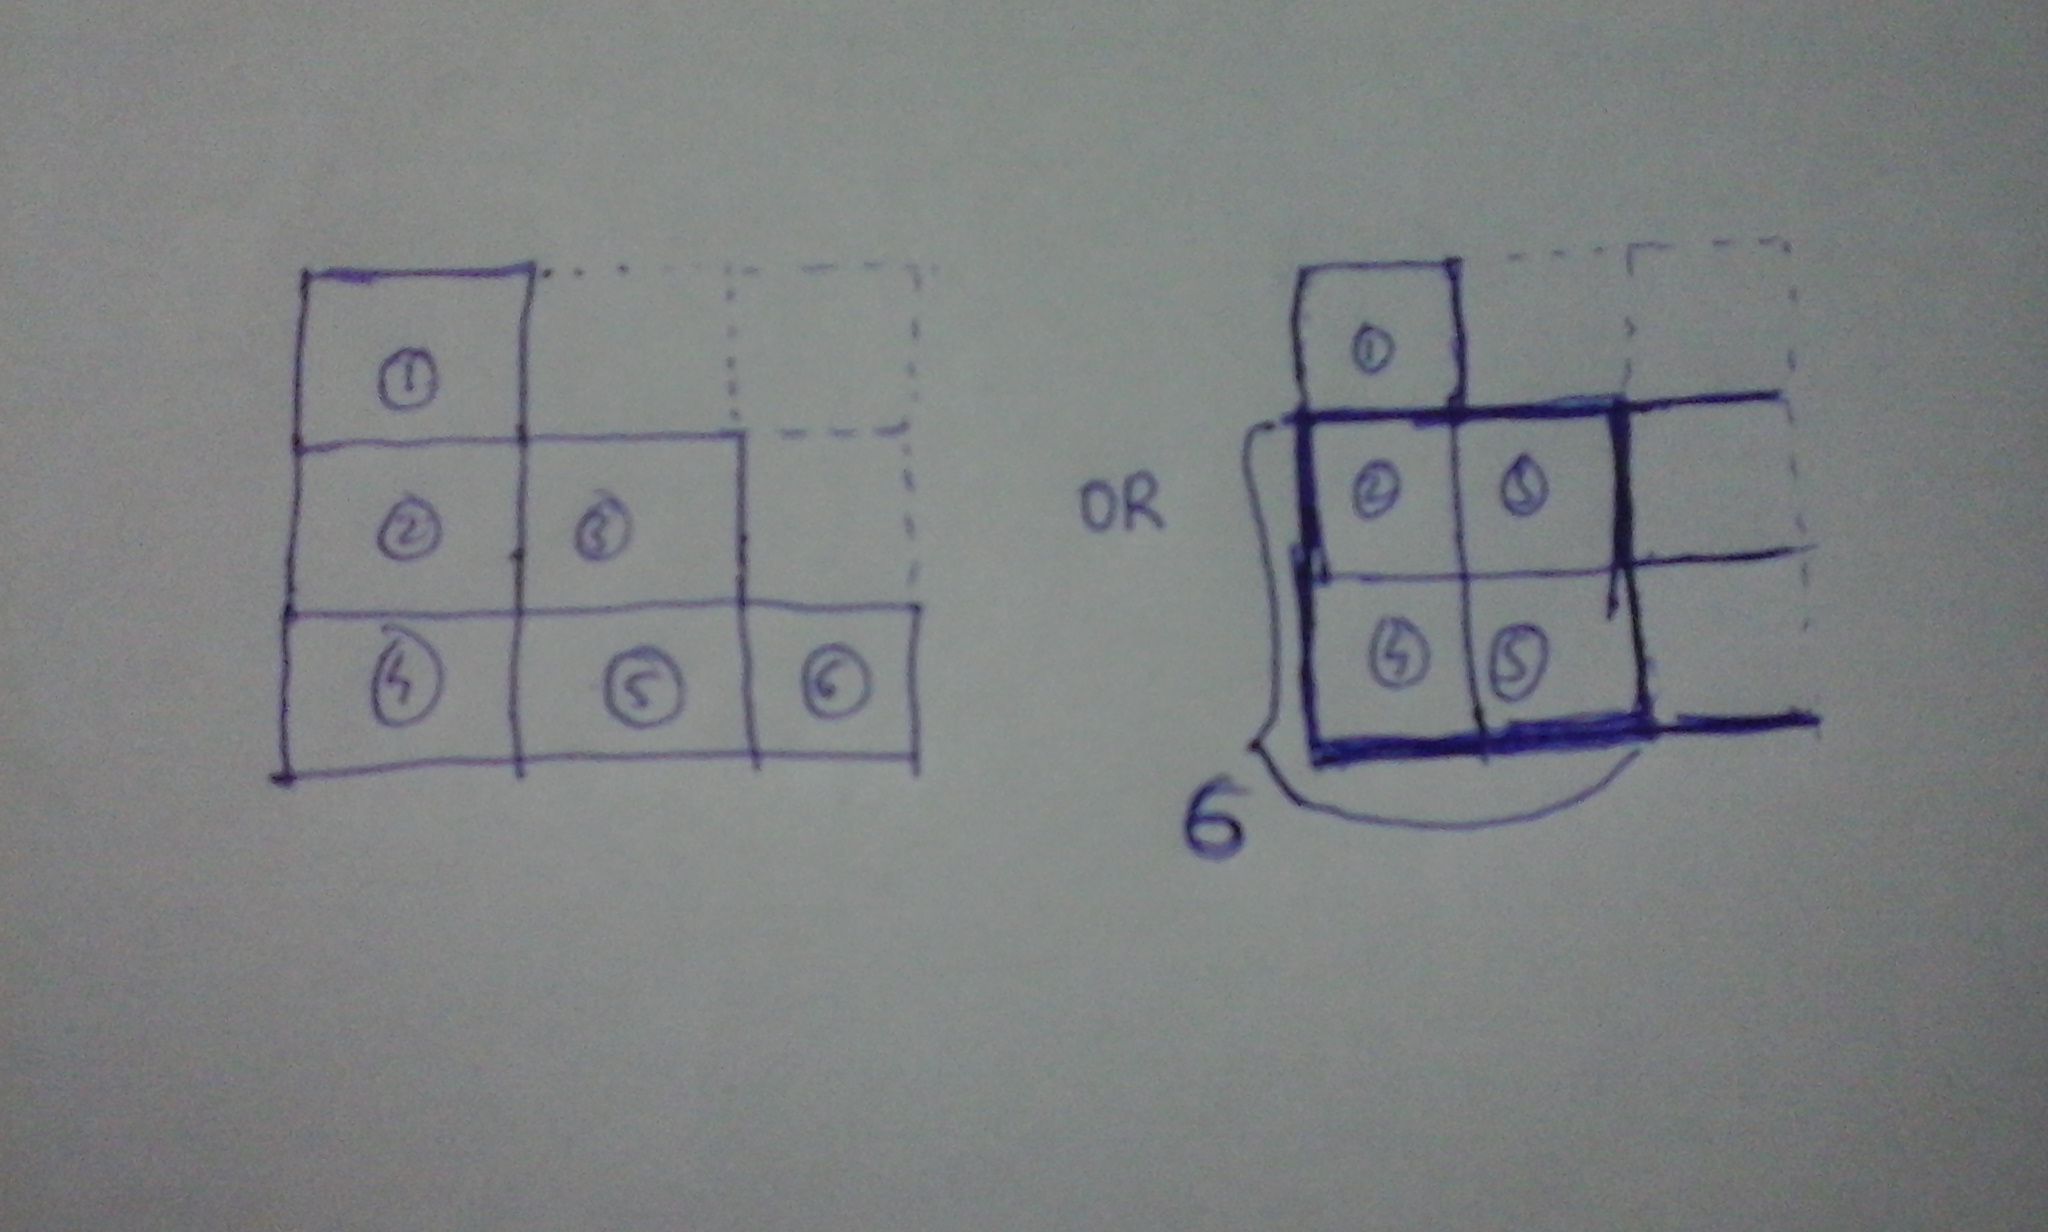 ①
② ③
④ ⑤ ⑥
OR
①
② ③
④ ⑤
6